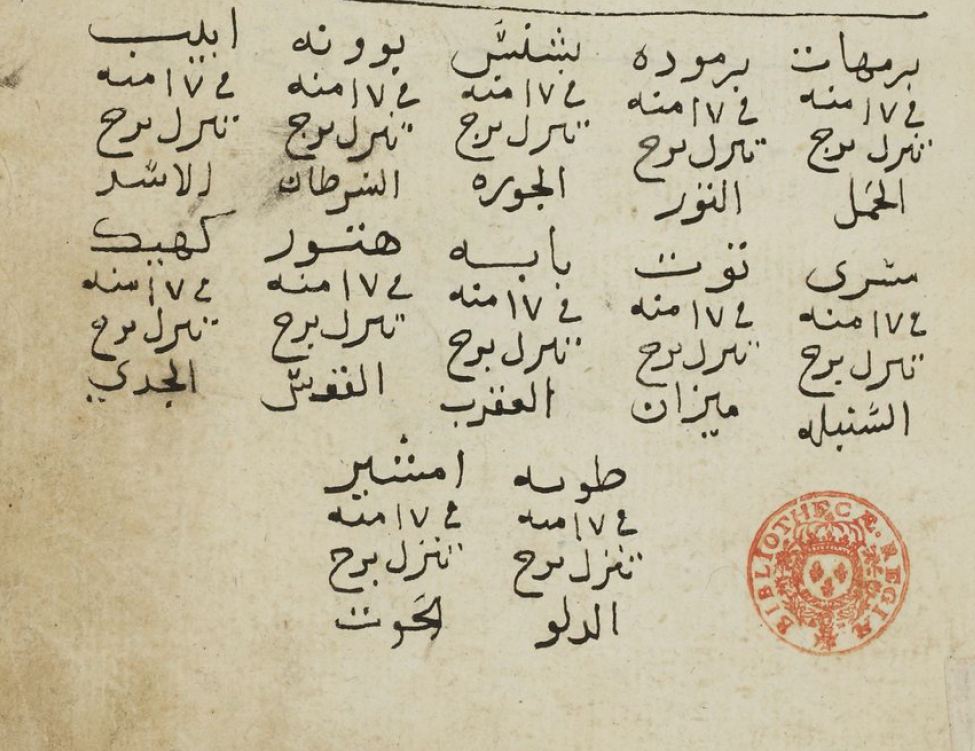 برمهات
في ١٧ منه
تنزل برج
الحمل
برموده
في ١٧ منه
تنزل برج
الثور
بشنس
في ١٧ منه
تنزل برج
الجوزه
بوونه
في ١٧ منه
تنزل برج
السرطان
ابيب
في ١٧ منه
تنزل برج
الاسد
مسرى
في ١٧ منه
تنزل برج
السنبله
توت
في ١٧ منه
تنزل برج
ميزان
بابه
في ١٧ منه
تنزل برج
العقرب
هتور
في ١٧ منه
تنزل برج
القوس
كهيك
في ١٧ منه
تنزل برج
الجدي
طوبه
في ١٧ منه
تنزل برج
الدلو
امشير
في ١٧ منه
تنزل برج
الحوت
BIBLIOTHECÆ REGIÆ